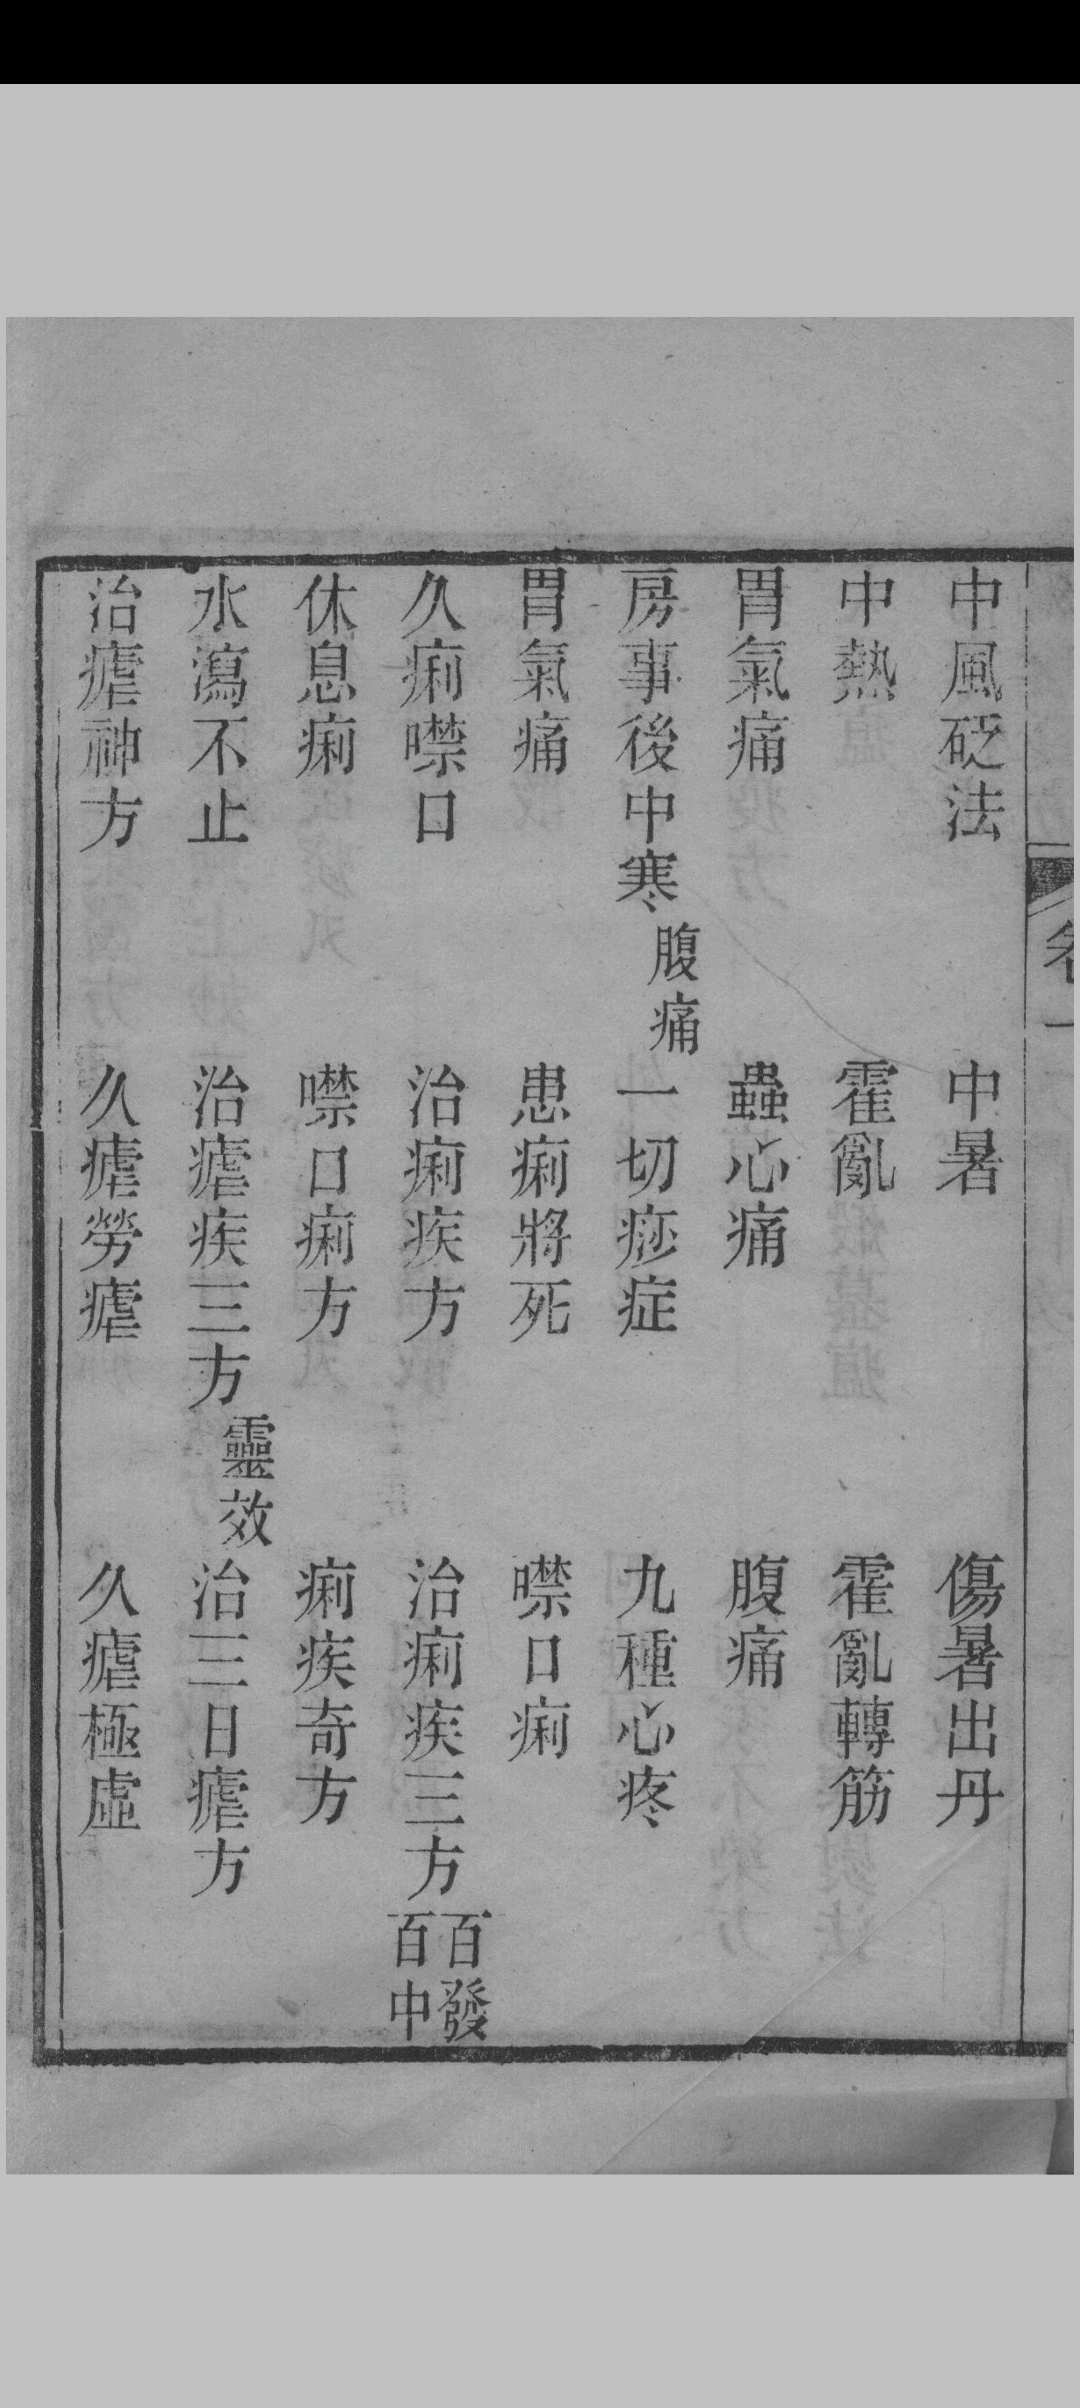 中風砭法 中暑 傷暑出丹
中熱 霍亂 霍亂轉筋
胃氣痛 蟲心痛 腹痛
房事後中寒腹痛 一切痧症 九種心疼
胃氣痛 患痢將死 噤口痢
久痢噤口 治痢疾方 治痢疾三方百發百中
休息痢 噤口痢方 痢疾奇方
水瀉不止 治瘧疾三方靈效 治三日瘧方
治瘧神方 久瘧勞瘧 久瘧極虛